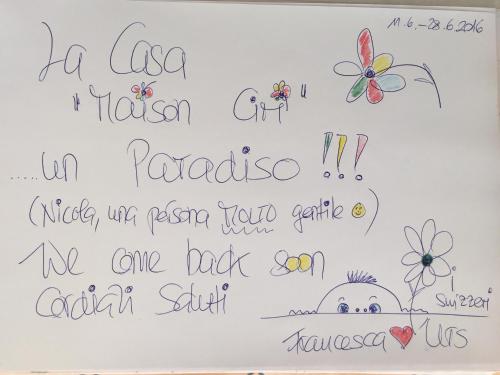 11.6.-28.6.2016
La Casa
"Maison Giri"
.....un Paradiso !!!
(Nicola, una pérsona MOLTO gentile )
We come back soon
Cordiali Saluti
i
Svizzeri
Francesca Urs